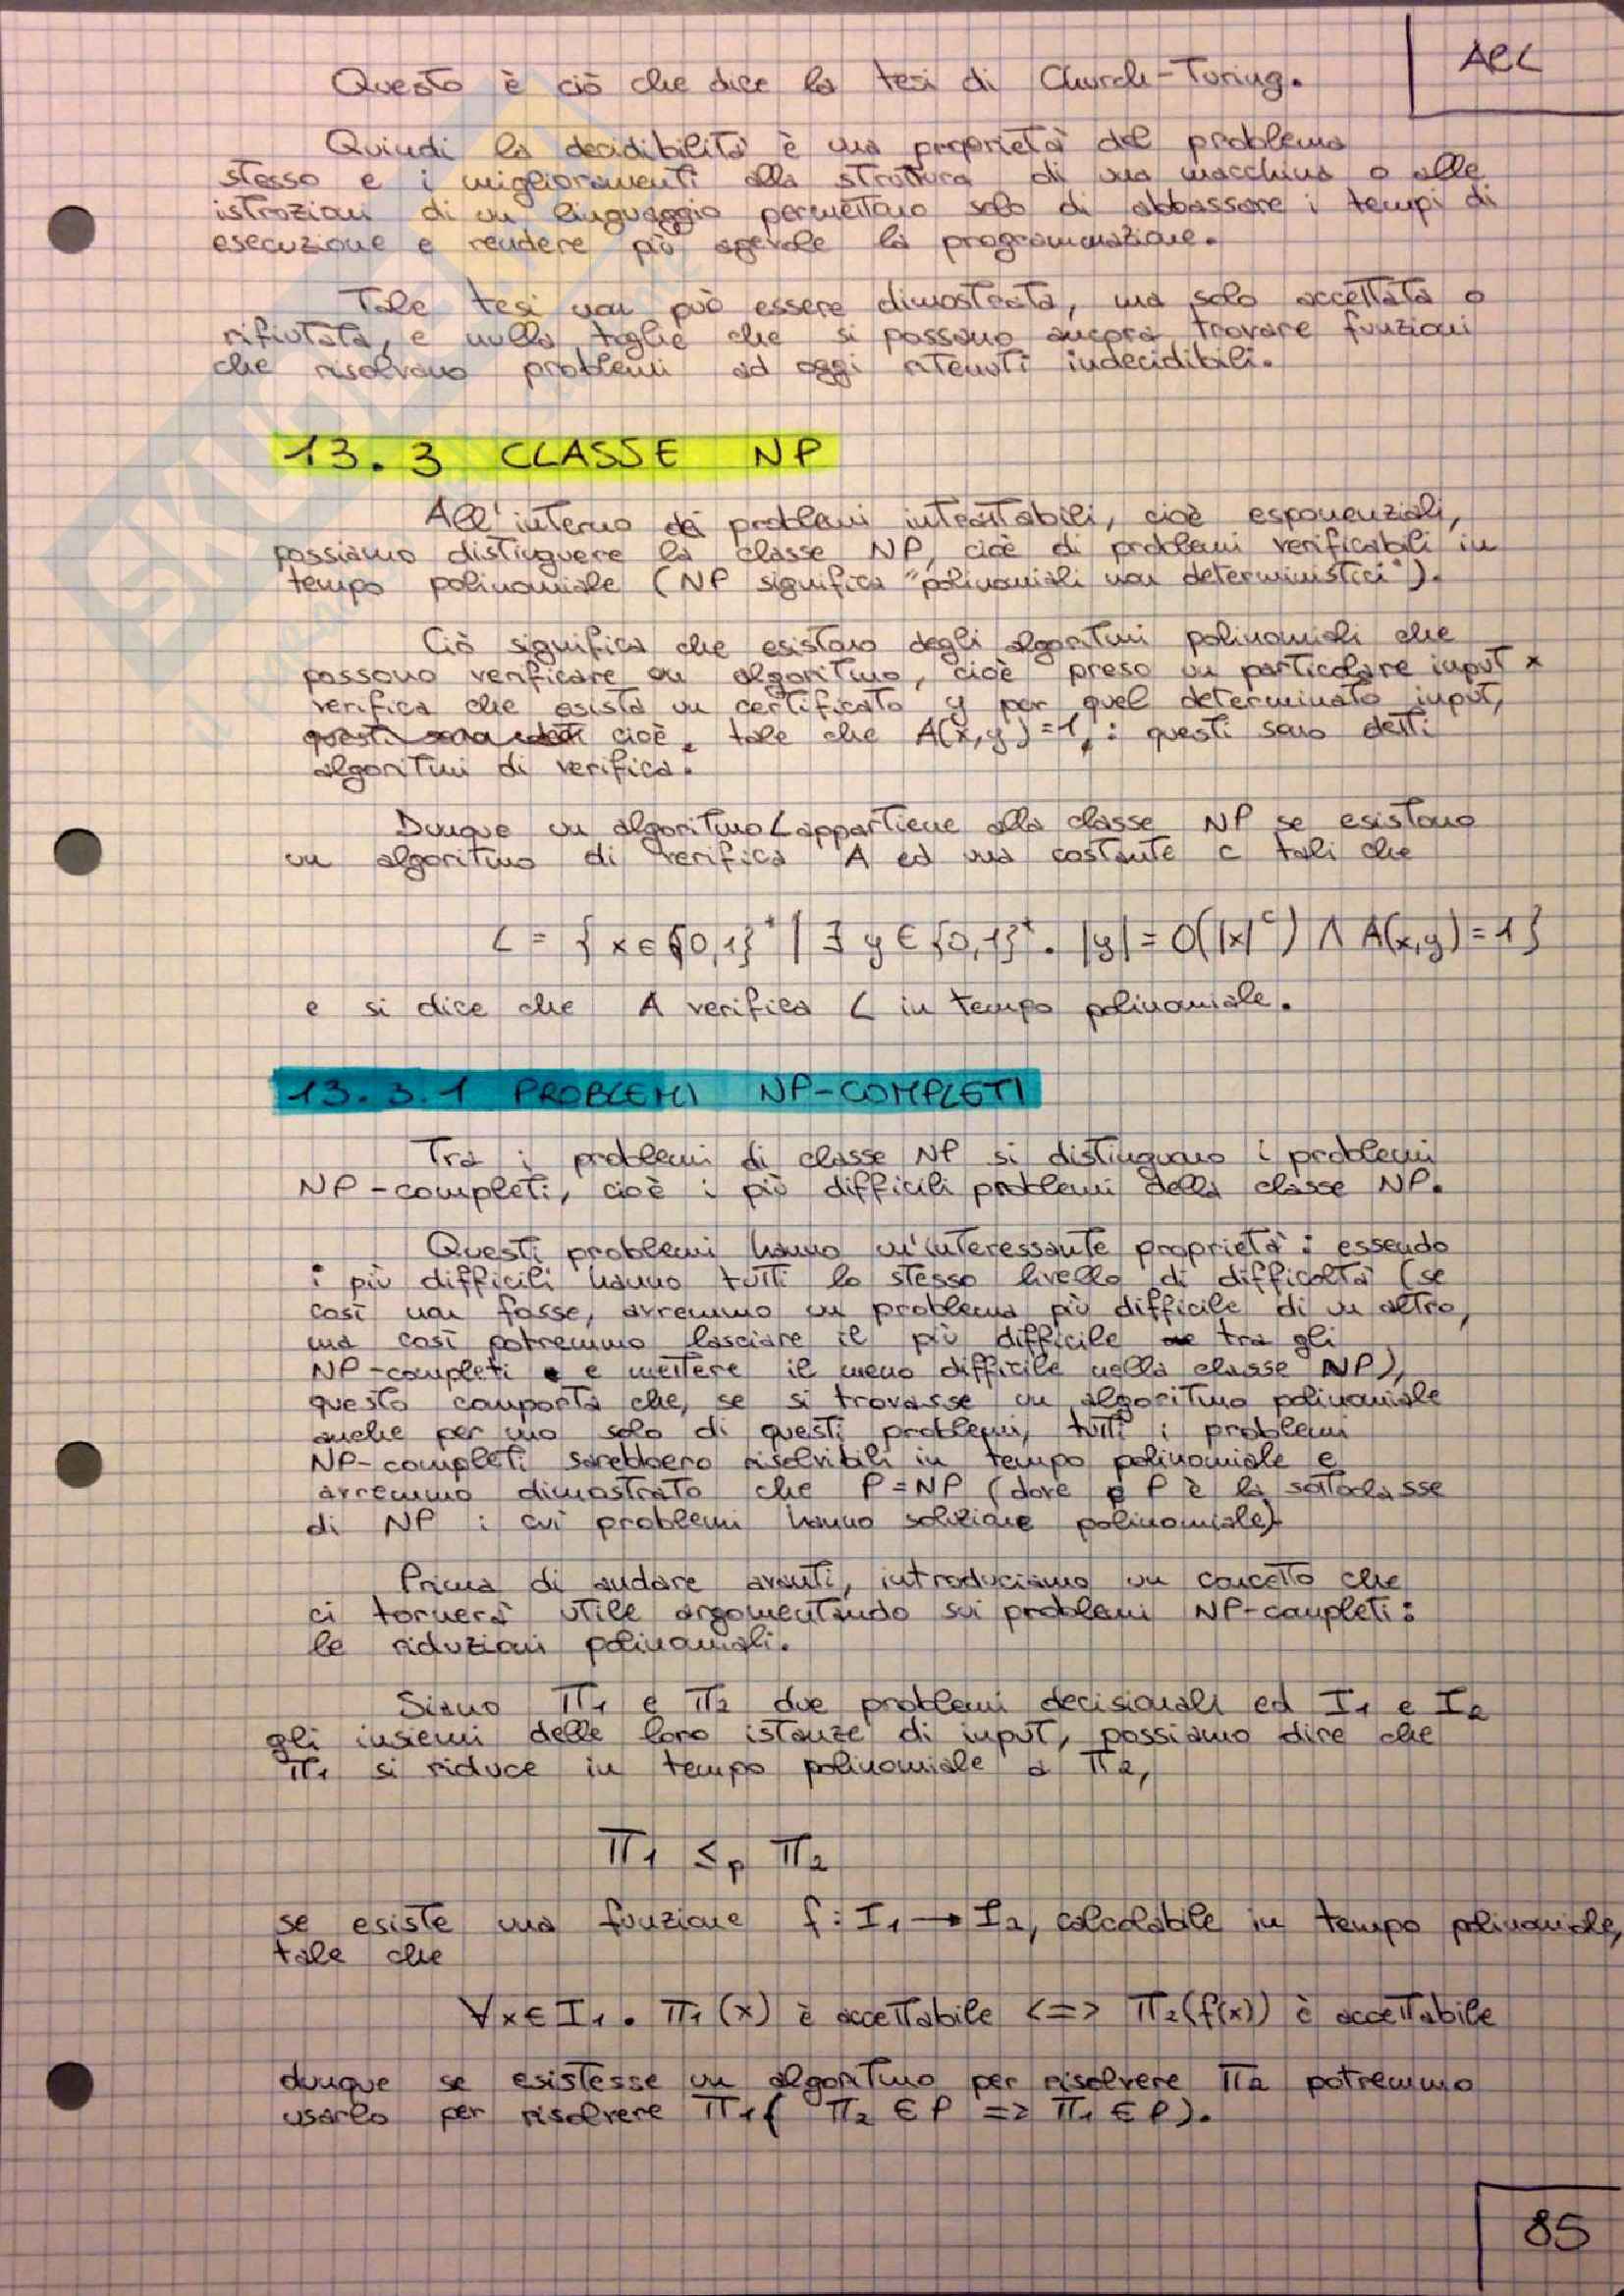 AEC
Questo è ciò che dice la tesi di Church-Turing.
Quindi la decidibilità è una proprietà del problema
stesso e i miglioramenti alla struttura di una macchina o alle
istruzioni di un linguaggio permettono solo di abbassare i tempi di
esecuzione e rendere più agevole la programmazione.
Tale tesi non può essere dimostrata, ma solo accettata o
rifiutata, e nulla toglie che si possano ancora trovare funzioni
che risolvano problemi ad oggi ritenuti indecidibili.
13.3 CLASSE NP
All'interno dei problemi intrattabili, cioè esponenziali,
possiamo distinguere la classe NP, cioè di problemi verificabili in
tempo polinomiale (NP significa "polinomiali non deterministici").
Ciò significa che esistono degli algoritmi polinomiali che
possono verificare un algoritmo, cioè preso un particolare input x
verifica che esista un certificato y per quel determinato input,
cioè, tale che A(x,y)=1,: questi sono detti
algoritmi di verifica.
Dunque un algoritmo L appartiene alla classe NP se esistono
un algoritmo di verifica A ed una costante c tali che
L = { x ∈ {0,1}* | ∃ y ∈ {0,1}*. |y| = O(|x|^c) ∧ A(x,y)=1}
e si dice che A verifica L in tempo polinomiale.
13.3.1 PROBLEMI NP-COMPLETI
Tra i problemi di classe NP si distinguono i problemi
NP-completi, cioè i più difficili problemi della classe NP.
Questi problemi hanno un'interessante proprietà: essendo
i più difficili hanno tutti lo stesso livello di difficoltà (se
così non fosse, avremmo un problema più difficile di un altro,
ma così potremmo lasciare il più difficile tra gli
NP-completi e mettere il meno difficile nella classe NP),
questo comporta che, se si trovasse un algoritmo polinomiale
anche per uno solo di questi problemi, tutti i problemi
NP-completi sarebbero risolvibili in tempo polinomiale e
avremmo dimostrato che P=NP (dove P è la sottoclasse
di NP i cui problemi hanno soluzione polinomiale)
Prima di andare avanti, introduciamo un concetto che
ci tornerà utile argomentando sui problemi NP-completi:
le riduzioni polinomiali.
Siano Π1 e Π2 due problemi decisionali ed I1 e I2
gli insiemi delle loro istanze di input, possiamo dire che
Π1 si riduce in tempo polinomiale a Π2,
Π1 ≤p Π2
se esiste una funzione f: I1 → I2, calcolabile in tempo polinomiale,
tale che
∀x∈I1. Π1(x) è accettabile <=> Π2(f(x)) è accettabile
dunque se esistesse un algoritmo per risolvere Π2 potremmo
usarlo per risolvere Π1 ( Π2 ∈ P => Π1 ∈ P).
85